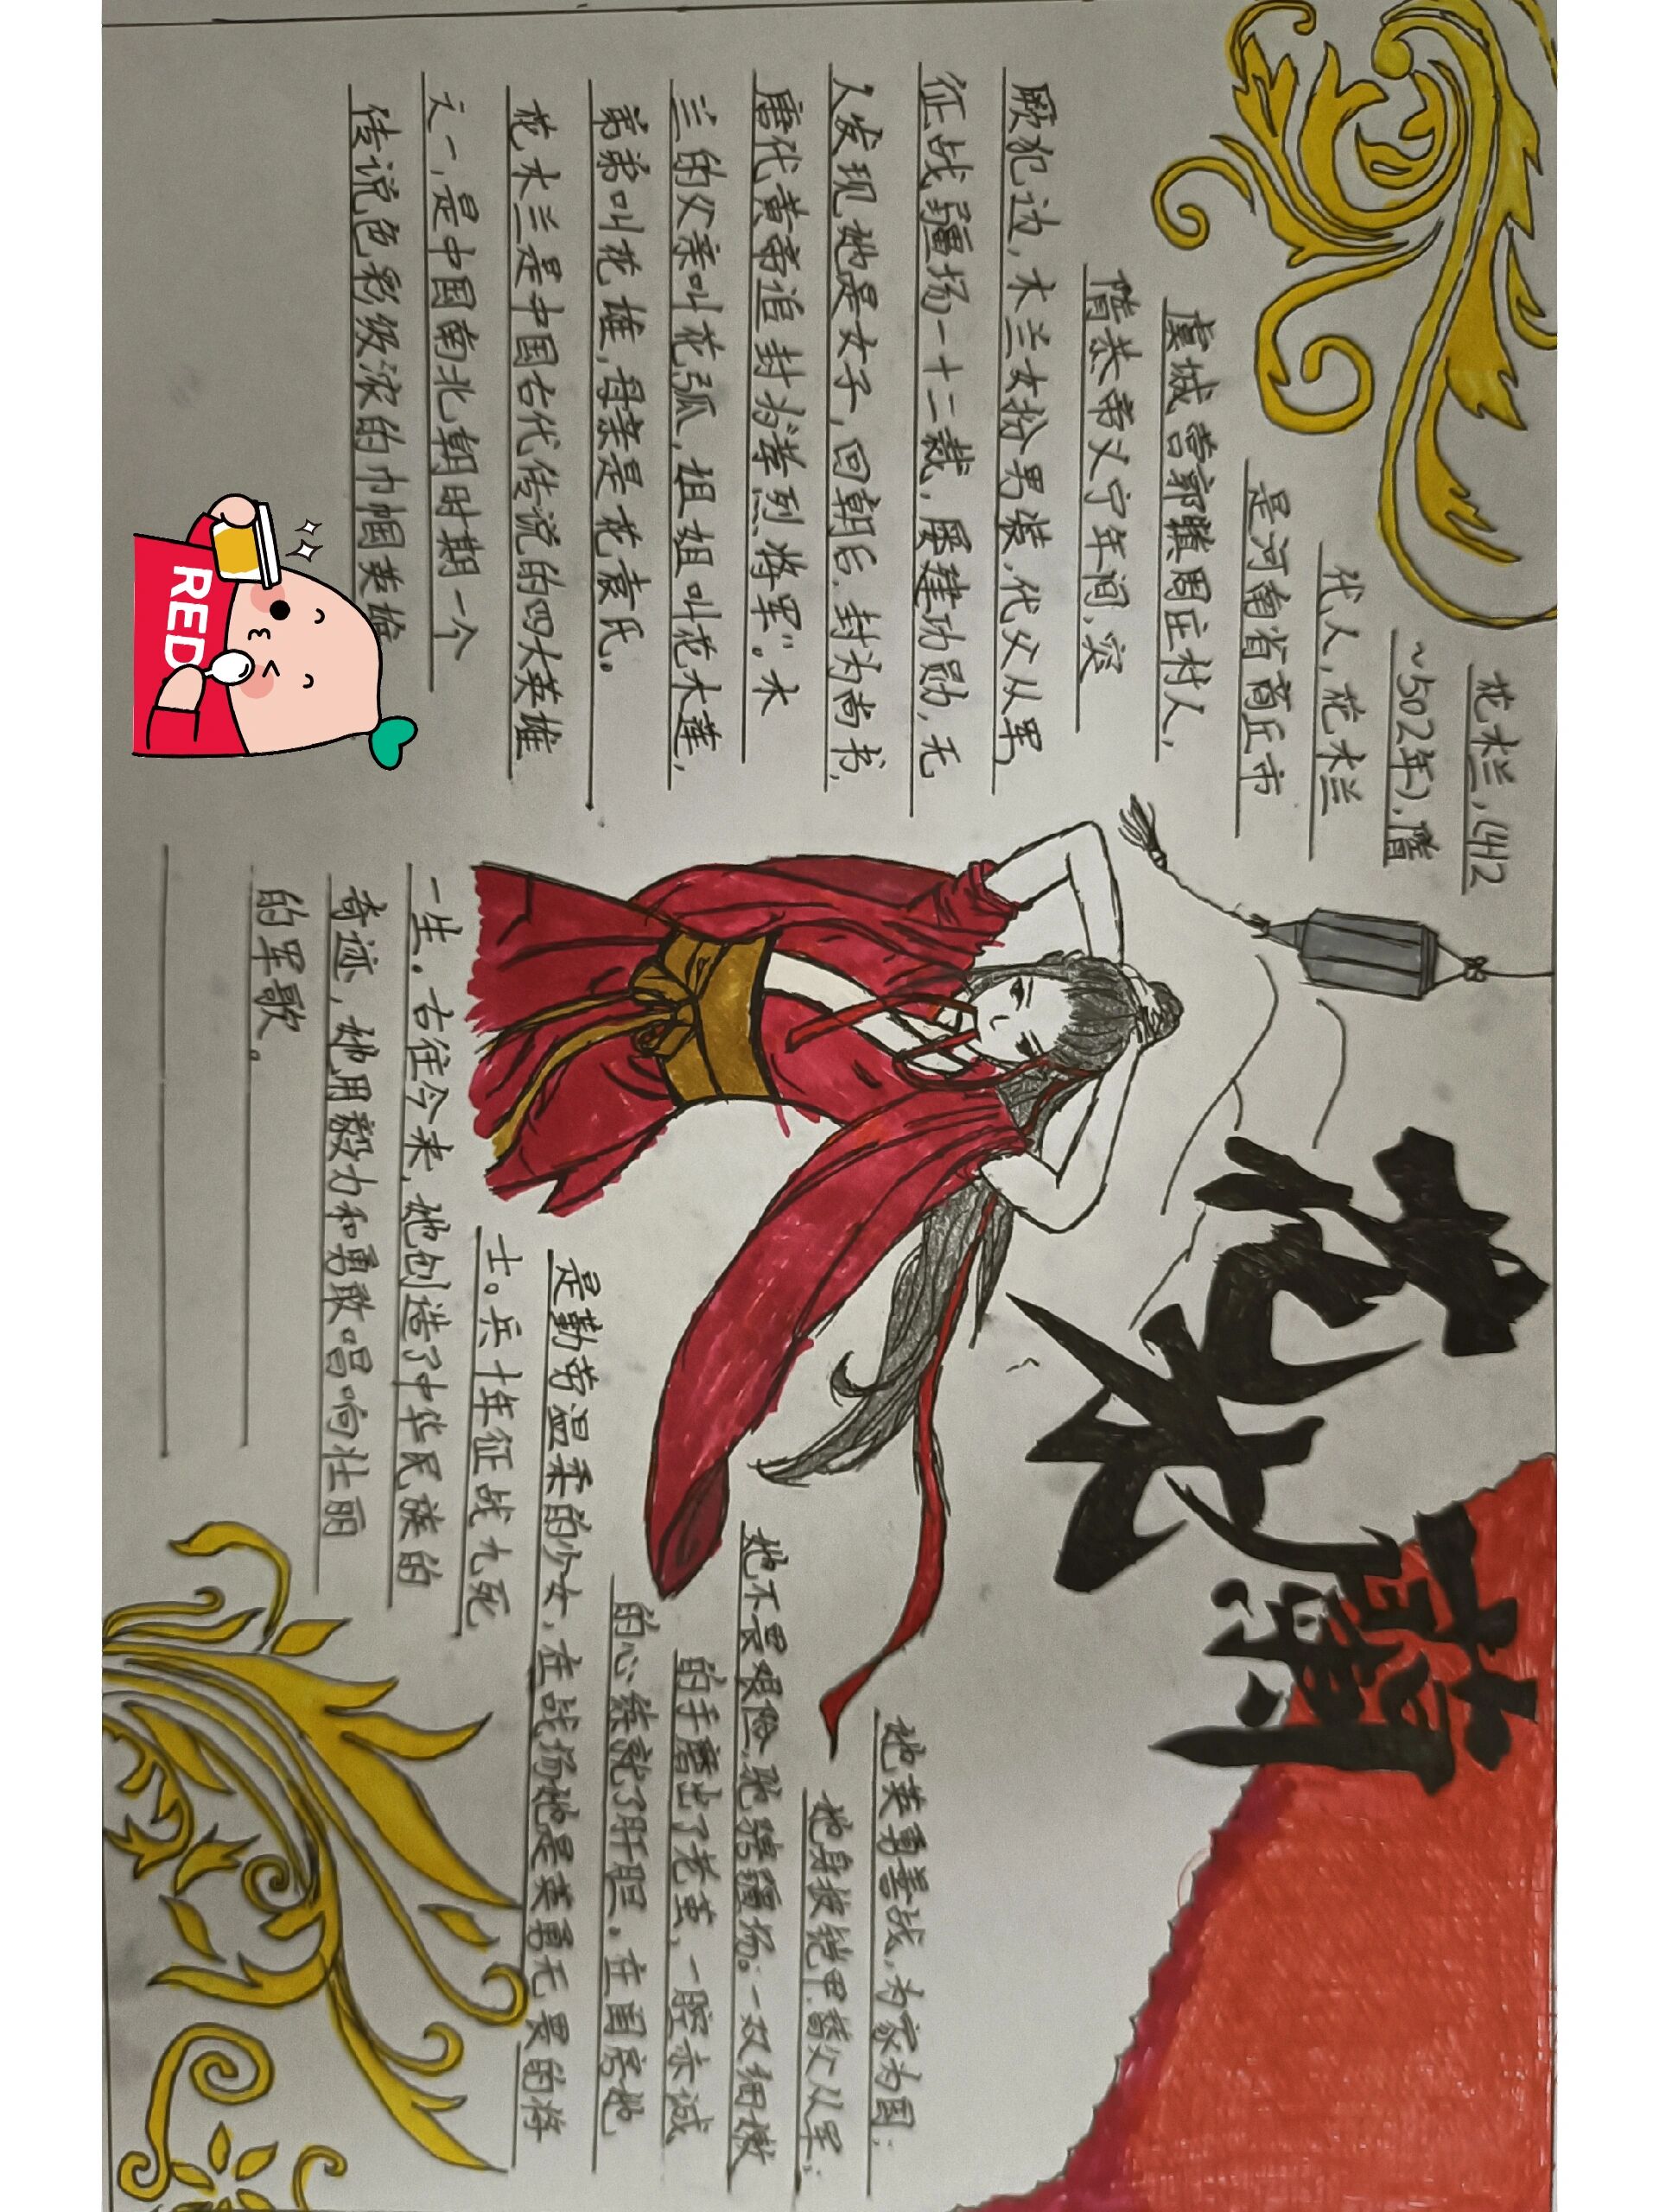 花木蘭
花木兰,(412
~502年),隋
代人,花木兰
是河南省商丘市
虞城营郭镇周庄村人,
隋恭帝义宁年间,突
厥犯边,木兰女扮男装,代父从军,
征战疆场一十二载,屡建功勋,无
人发现她是女子,回朝后,封为尚书,
唐代黄帝追封为“孝烈将军”。木
兰的父亲叫花弧,姐姐叫花木莲,
弟弟叫花雄,母亲是花袁氏。
花木兰是中国古代传说的四大英雄
之一,是中国南北朝时期一个
传说色彩级浓的巾帼英雄
她英勇善战,为家为国;
她身披铠甲,替父从军;
她不畏艰险,驰骋疆场。一双细嫩
的手磨出了老茧,一腔赤诚
的心练就了肝胆。在国房她
是勤劳温柔的少女,在战场她是英勇无畏的将
士。兵十年征战九死
一生。古往今来,她创造了中华民族的
奇迹,她用毅力和勇敢唱响壮丽
的军歌。
RED